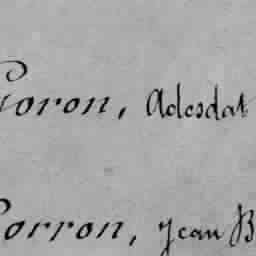 Coron, Adesdat
Corron, Jean B